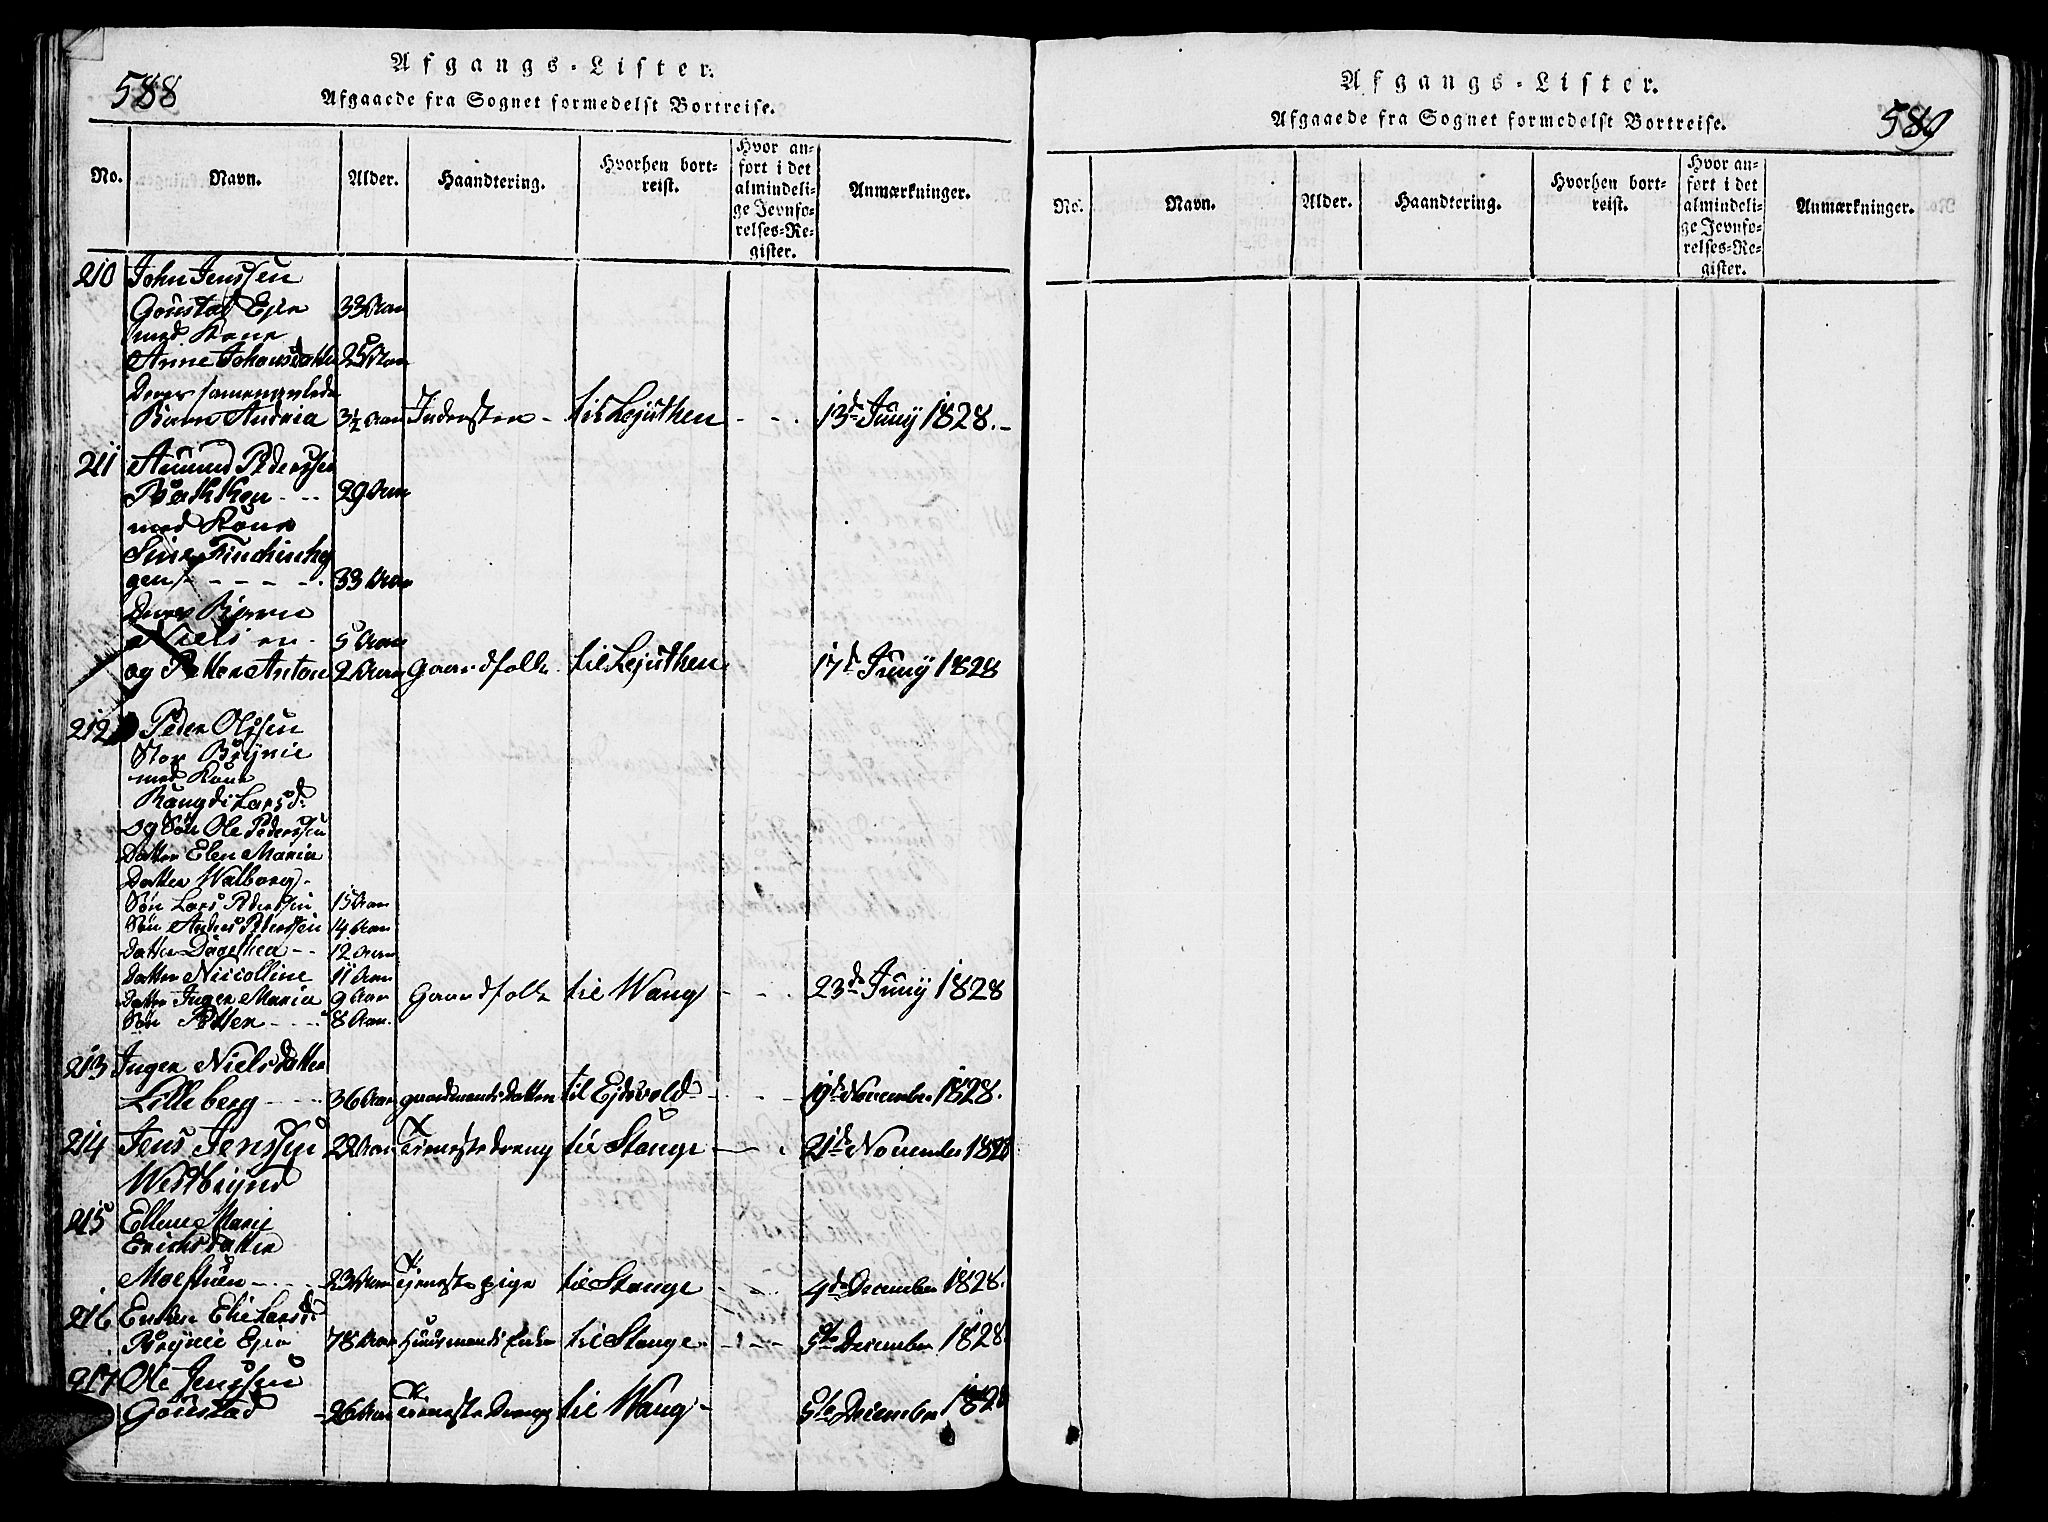 588
Afgangs-Lister.
Afgaaede fra Sognet formedelst Bortreise.
No.
Navn.
Alder.
Haandtering.
Hvorhen bort-
reist.
Hvor an-
ført i det
almindeli-
ge Jevnfø-
relses-Re-
gister.
Anmærkninger.
210 John Jenssen
Goustad Ejer 33 Aar
med Kone
Anne Johansdatter 25 Aar
Deres sammenavlede
Barn Andrea 3½ Aar Inderster til Løjuthen - - 13de Juny 1828.
211 Amund Pederssen
Bakken 29 Aar
med Kone
gen 33 Aar
Deres Børn
Niels 5 Aar
og Petter Anton 2 Aar Gaardfolk til Løjuthen 17de Juny 1828
212 Peder Olssen
Stor Brynie
med Kone
Rangdi Larsd:
og Søn Ole Pederssen
Datter Elen Maria
Datter Walborg
Søn Lars Pederssen 15 Aar
Søn Anders Pederssen 14 Aar
Datter Dagethea 12 Aar
Datter Nicolline 11 Aar
Datter Inger Maria 9 Aar Gaardfolk til Wang - - 23de Juny 1828
Søn Petter 8 Aar
213 Inger Nielsdatter
Lilleberg 36 Aar gaardmandsdatter til Ejdsvold - - 19de November 1828.
214 Jens Jenssen 29 Aar Tieneste dreng til Stange - 21de November 1828
Westbrynd
215 Ellene Marie
Erichsdatter
Moestuen 23 Aar Tjeneste pige til Stange - - 4de December 1828.
216 Enken Elie Larsd:
Brynie Ejer 78 Aar Huusmands Enke til Stange - - 5te December 1828
217 Ole Jenssen
Goustad 26 Aar Tieneste dreng til Wang - 5te December 1828
Afgangs-Lister.
Afgaaede fra Sognet formedelst Bortreise.
589
No.
Navn.
Alder.
Haandtering.
Hvorhen bort-
reist.
Hvor an-
ført i det
almindeli-
ge Jevnfø-
relses-Re-
gister.
Anmærkninger.